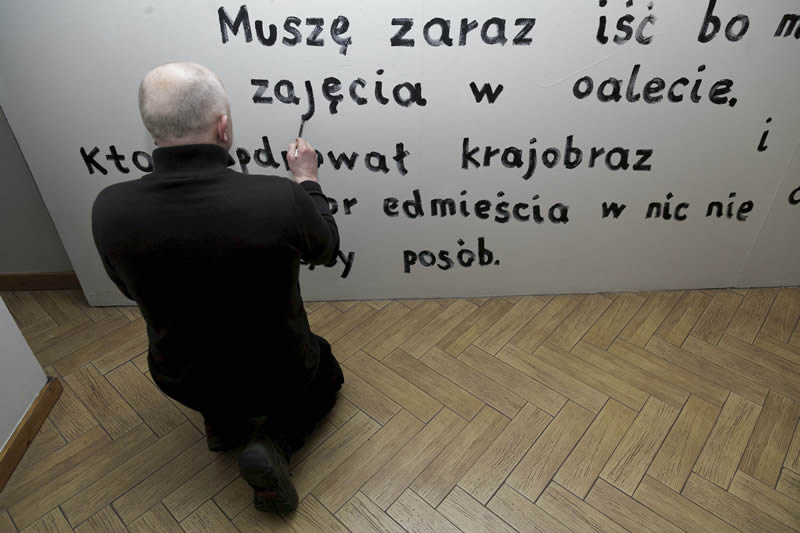 Muszę zaraz iść bo
zajęcia w oalecie.
Kto krajobraz i
edmieścia w nic nie
posób.